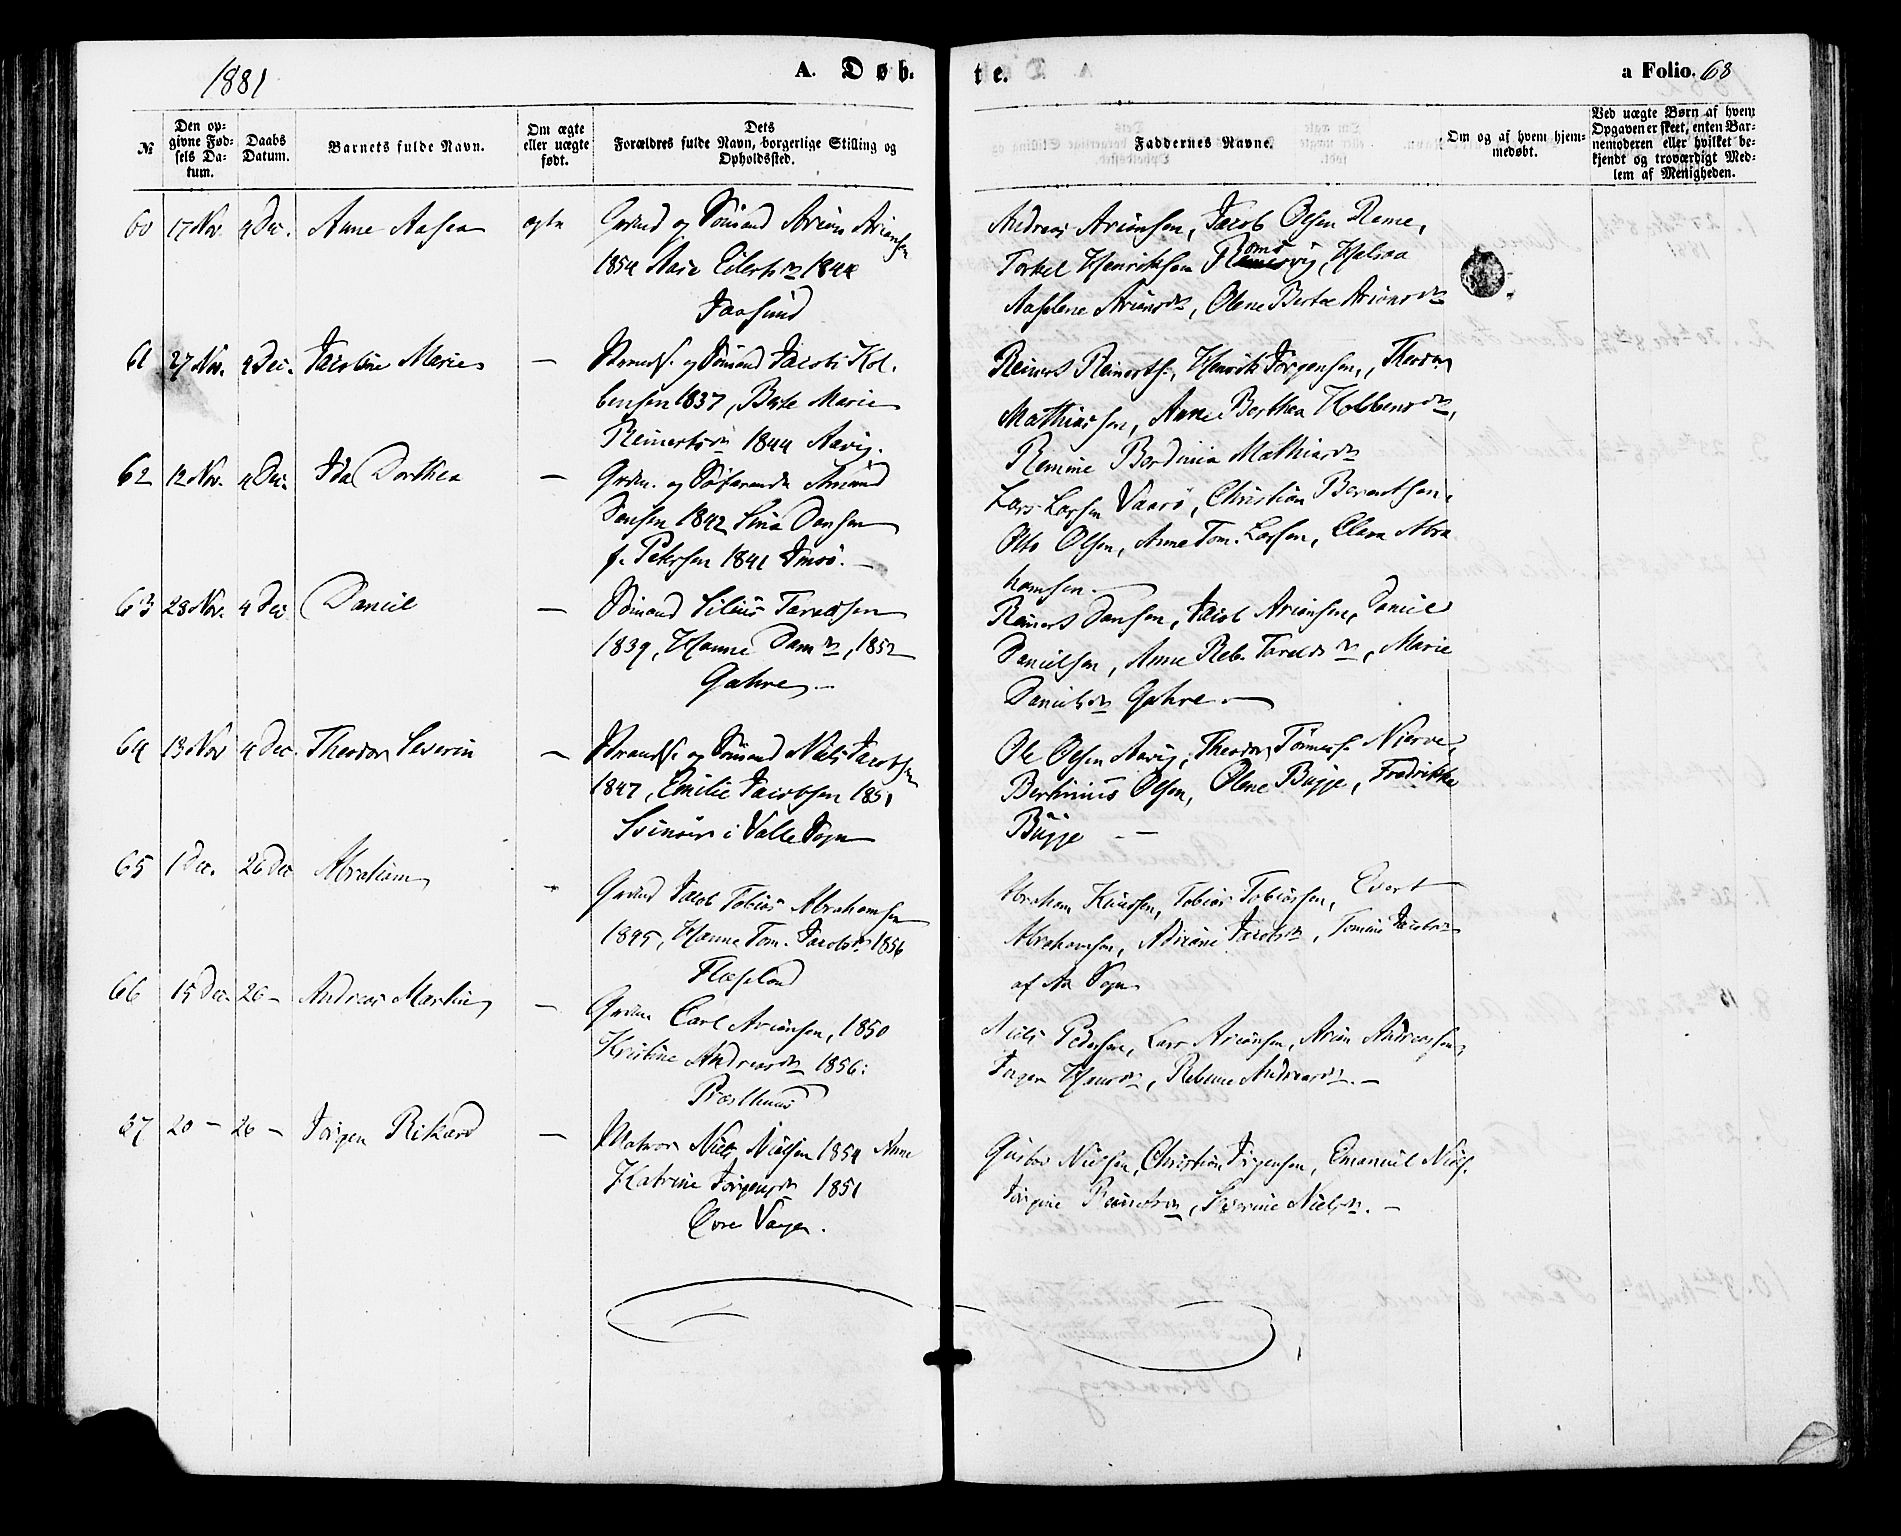 1881
A. Døb-
te.
a Folio. 68
№
Den opgivne Fødsels Datum.
Daabs Datum.
Barnets fulde Navn.
Om ægte eller uægte født.
Dets Forældres fulde Navn, borgerlige Stilling og Opholdssted.
Faddernes Navne.
Om og af hvem hjemmedøbt.
Ved uægte Børn af hvem Opgaven er skeet, enten Barnemoderen eller hvilket bekjendt og troværdigt Medlem af Menigheden.
60 17 Nov. 4 Dec. Anne Aasea ægte Grdmd og Sømand Arian Ariansen
1854 Marie Eilerts Dn 1844
Andreas Ariansen, Jacob Olsen Rame,
Torkel Henriksen Romsvig, Helsaa
Aaselene Arians Dn, Olene Bertee Arians Dn
61 27 Nov. 4 Dec. Jacobine Marie — Strands. og Sømand Jacob Kol-
bensen 1837, Berte Marie
Reinerts Dn 1844 Aavig.
Reinert Reinerts., Henrik Jørgensen, Theodor
Mathiassen, Anne Berthea Kolbens Dn,
Remine Bordinia Mathias Dn
62 12 Nov. 4 Dec. Ida Dorthea — Grdm. og Søfarende Amund
Jansen 1842 Sina Jansen
f. Petersen 1841 Imsø. —
Lars Larsen Vaarø, Christian Berentsen,
Otto Olsen, Anne Tom. Larsen, Elena Abra
hamsen.
63 28 Nov. 4 Dec. Daniel — Sømand Silius Taraldsen
1839, Hanne Dan Dn, 1852
Gahre —
Reinert Jansen, Jacob Ariansen, Daniel
Danielsen, Anne Reb. Tarelds Dn, Marie
Daniels Dn Gahre —
64 13 Nov 4 Dec. Theodor Severin — Strands. og Sømand Niels Jacobsen
1847, Emilie Jacobsen 1851
Svinør i Valle Sogn
Ole Olsen Aavig, Theodor Tønnes. Njerve,
Bertinius Olsen, Olene Bugge, Fredrikke
Bugge — —
65 1 Dec. 26 Dec Abraham — Grdmd Jacob Tobias Abrahamsen
1845, Hanne Tom. Jacobs Dn 1856
Abraham Knudsen, Tobias Tobiassen, Evert
Abrahamsen, Adriane Jacobs Dn, Tomine Jacobs Dn
af Aa Sogn
66 15 Dec. 26 — Andreas Martin — Grdm Carl Ariansen, 1850
Kristine Andreas Dn 1856:
Præsthuus
Niels Pedersen, Lars Ariansen, Arian Andreassen,
Inger Hans Dn, Rebecca Andreas Dn. —
67 20 — 26 — Jørgen Rikard — Matros Niels Nielsen 1854 Anne
Katrine Jørgens Dn 1851
Ovre Vaagen.
Gustav Nielsen, Christian Jørgensen, Emanuel Niels.
Jørgine Reinerts Dn, Severine Niels Dn. —